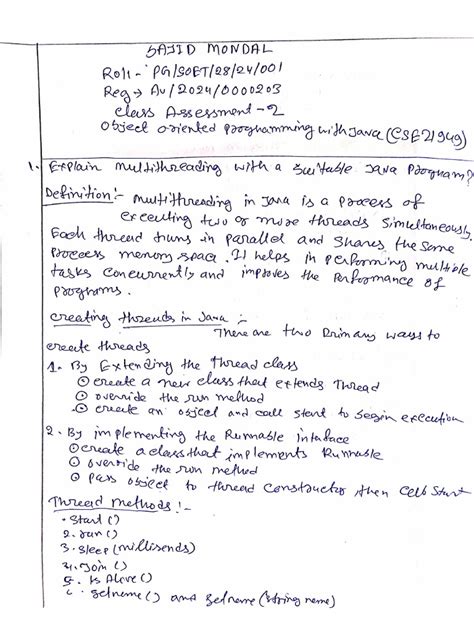 SAJID MONDAL
Roll - PG/SOET/28/24/001
Reg → AU/2024/0000203
Class Assessment - 2
Object oriented programming with Java (CSE21949)
1. Explain multithreading with a suitable Java Program?
Definition :- Multithreading in Java is a process of
executing two or more threads simultaneously,
Each thread runs in parallel and shares the same
process memory space. It helps in performing multiple
tasks concurrently and improves the Performance of
programs.
Creating threads in Java :-
There are two primary ways to
create threads
1. By Extending the Thread class
⊙ create a new class that extends Thread
⊙ override the run method
⊙ create an object and call start to begin execution
2. By implementing the Runnable Interface
⊙ create a class that implements Runnable
⊙ override the run method
⊙ pass object to thread constructor then call start
Thread methods :-
1. Start ()
2. run ()
3. Sleep (milliseconds)
4. Join ()
5. Is Alive ()
6. getname () and setname (string name)